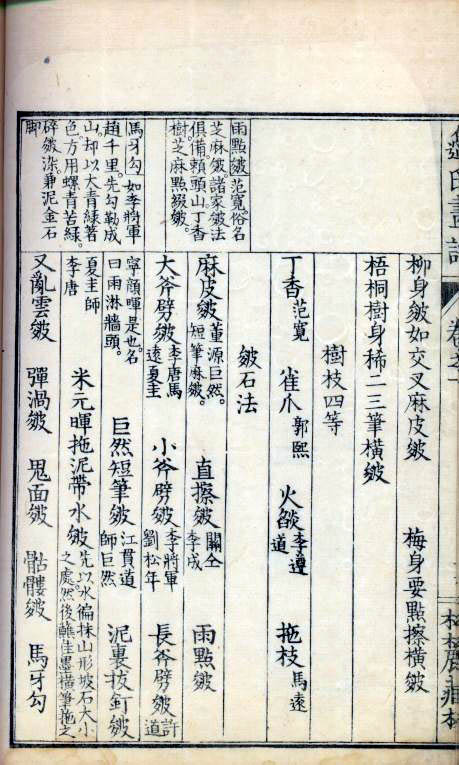 畫譜
卷之一
雨點皴范寬俗名
芝麻皴諸家皴法
俱備頼頭山丁香
樹芝麻點綴皴。
馬牙勾如李將軍
趙千里。先勾勒成
山。却以大青緑著
色。方用螺青苦緑。
碎皴染。兼泥金石
脚
柳身皴如交叉麻皮皴 梅身要點擦橫皴
梧桐樹身稀二三筆橫皴
樹枝四等
丁香范寬 雀爪郭熙 火燄李遵道 拖枝馬遠
皴石法
麻皮皴董源巨然。短筆麻皴。 直擦皴關仝李成 雨點皴
大斧劈皴李唐馬遠夏圭 小斧劈皴李將軍劉松年 長斧劈皴許道
寧顏暉是也。名曰雨淋牆頭。 巨然短筆皴江貫道師巨然 泥裏拔釘皴
夏圭師李唐 米元暉拖泥帶水皴先以水徧抹山形坡石大小之處。然後蘸佳墨橫筆拖之
又亂雲皴 彈渦皴 鬼面皴 骷髏皴 馬牙勾